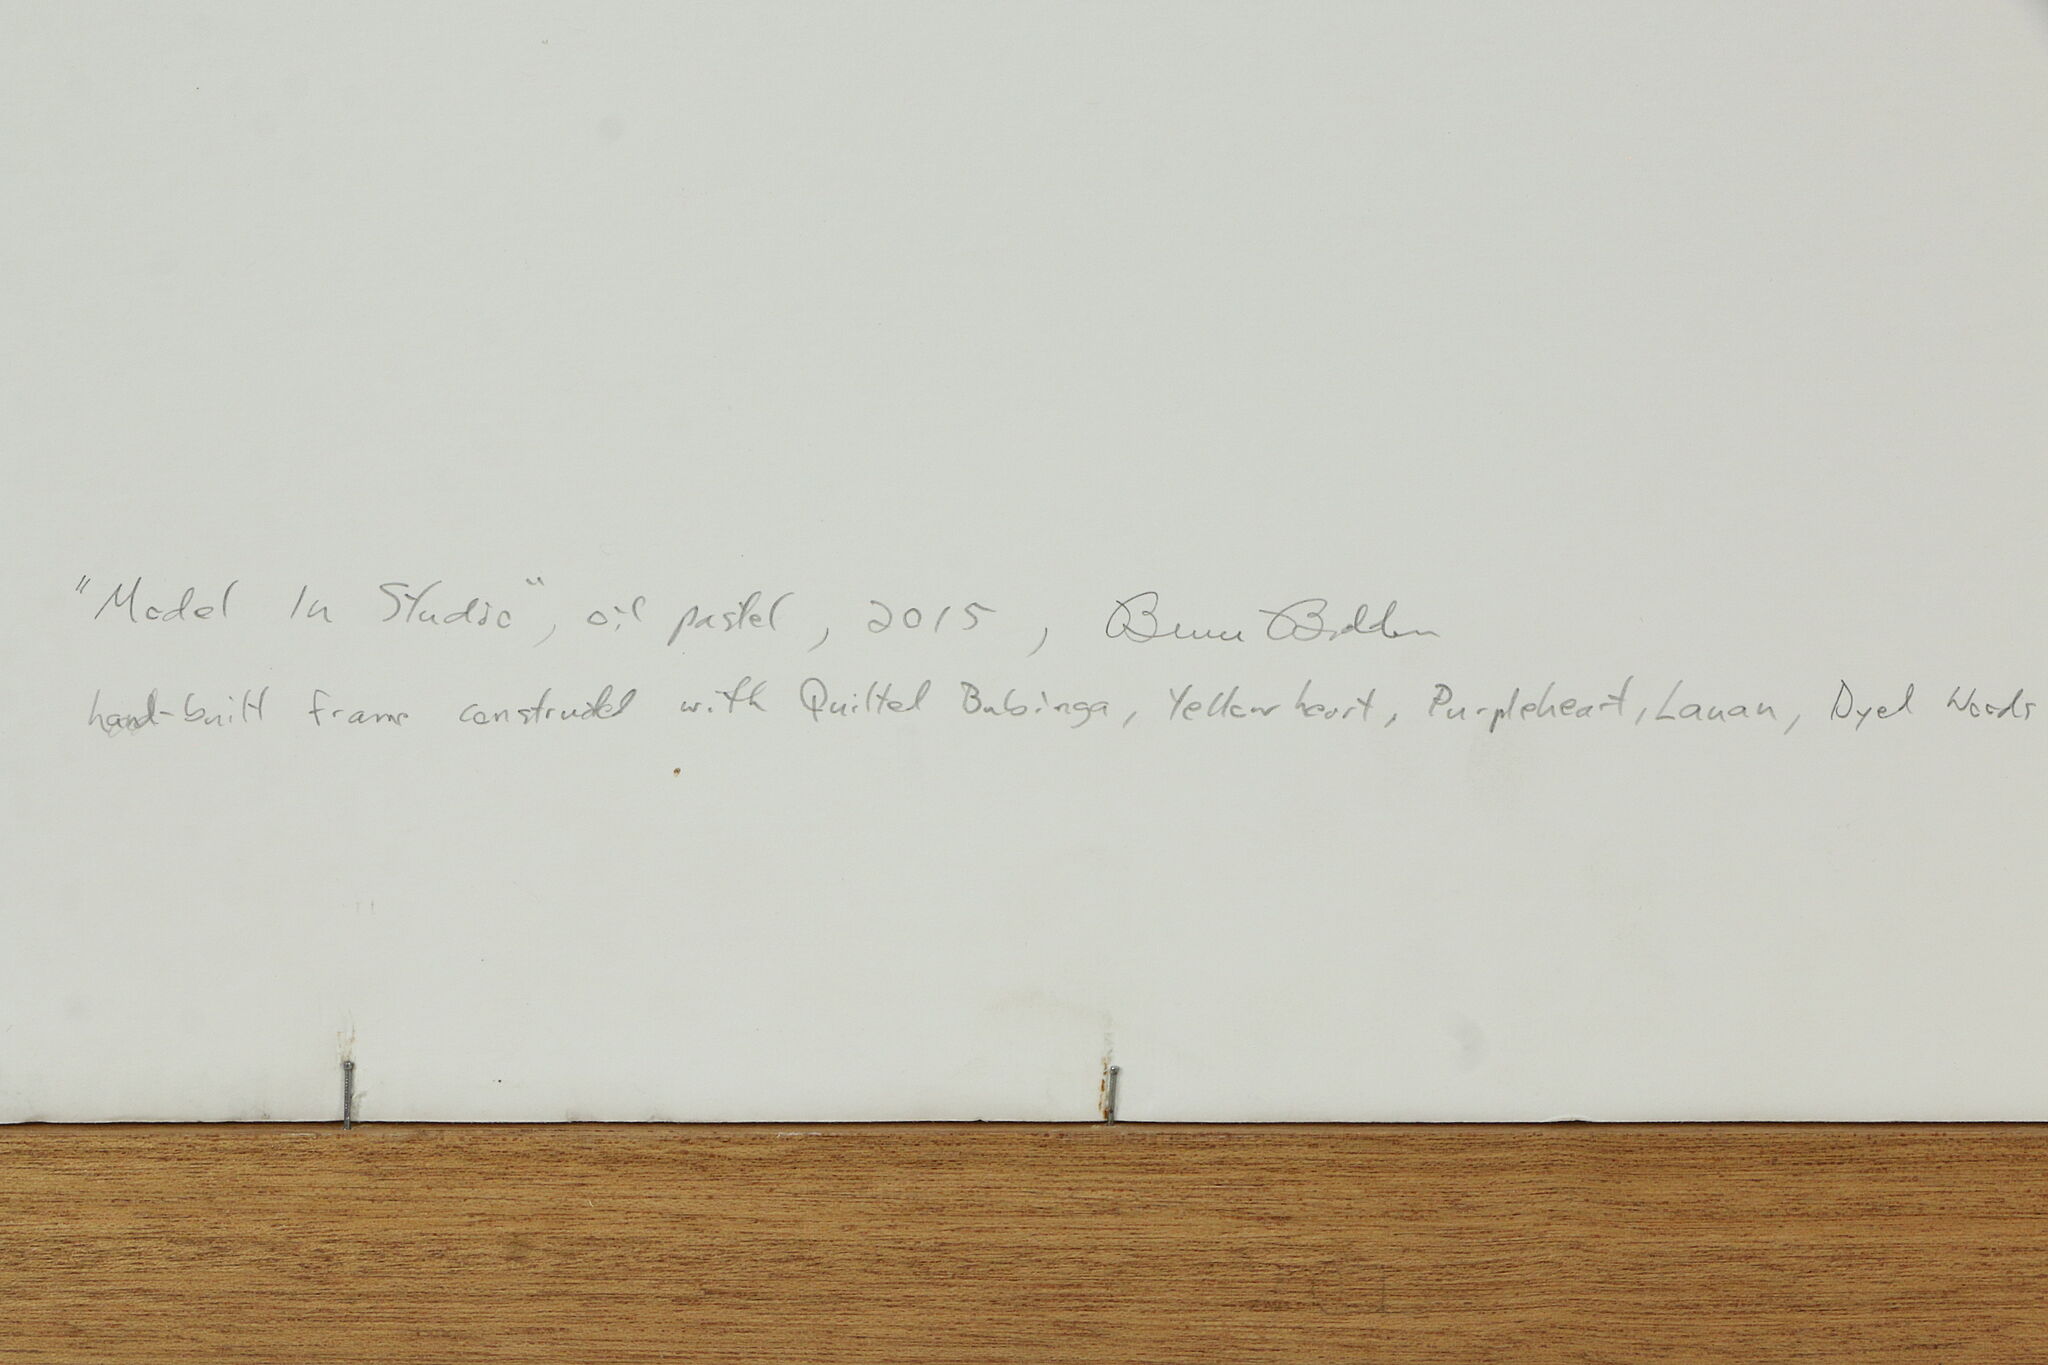 "Model In Studio", oil pastel, 2015, Bruce
hand-built frame constructed with Quilted Bubinga, Yellowheart, Purpleheart, Lauan, Dyed Woods